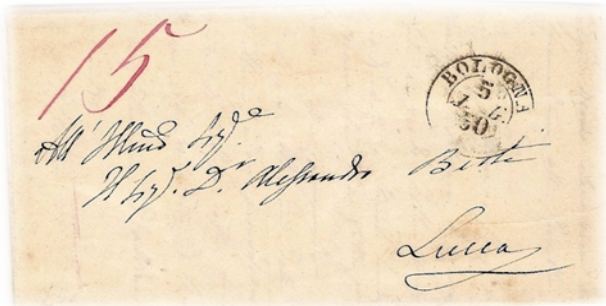 15
BOLOGNA
5
All' Illmo Sigr.e
Il Sigr. Dr. Alessandro
Lucca